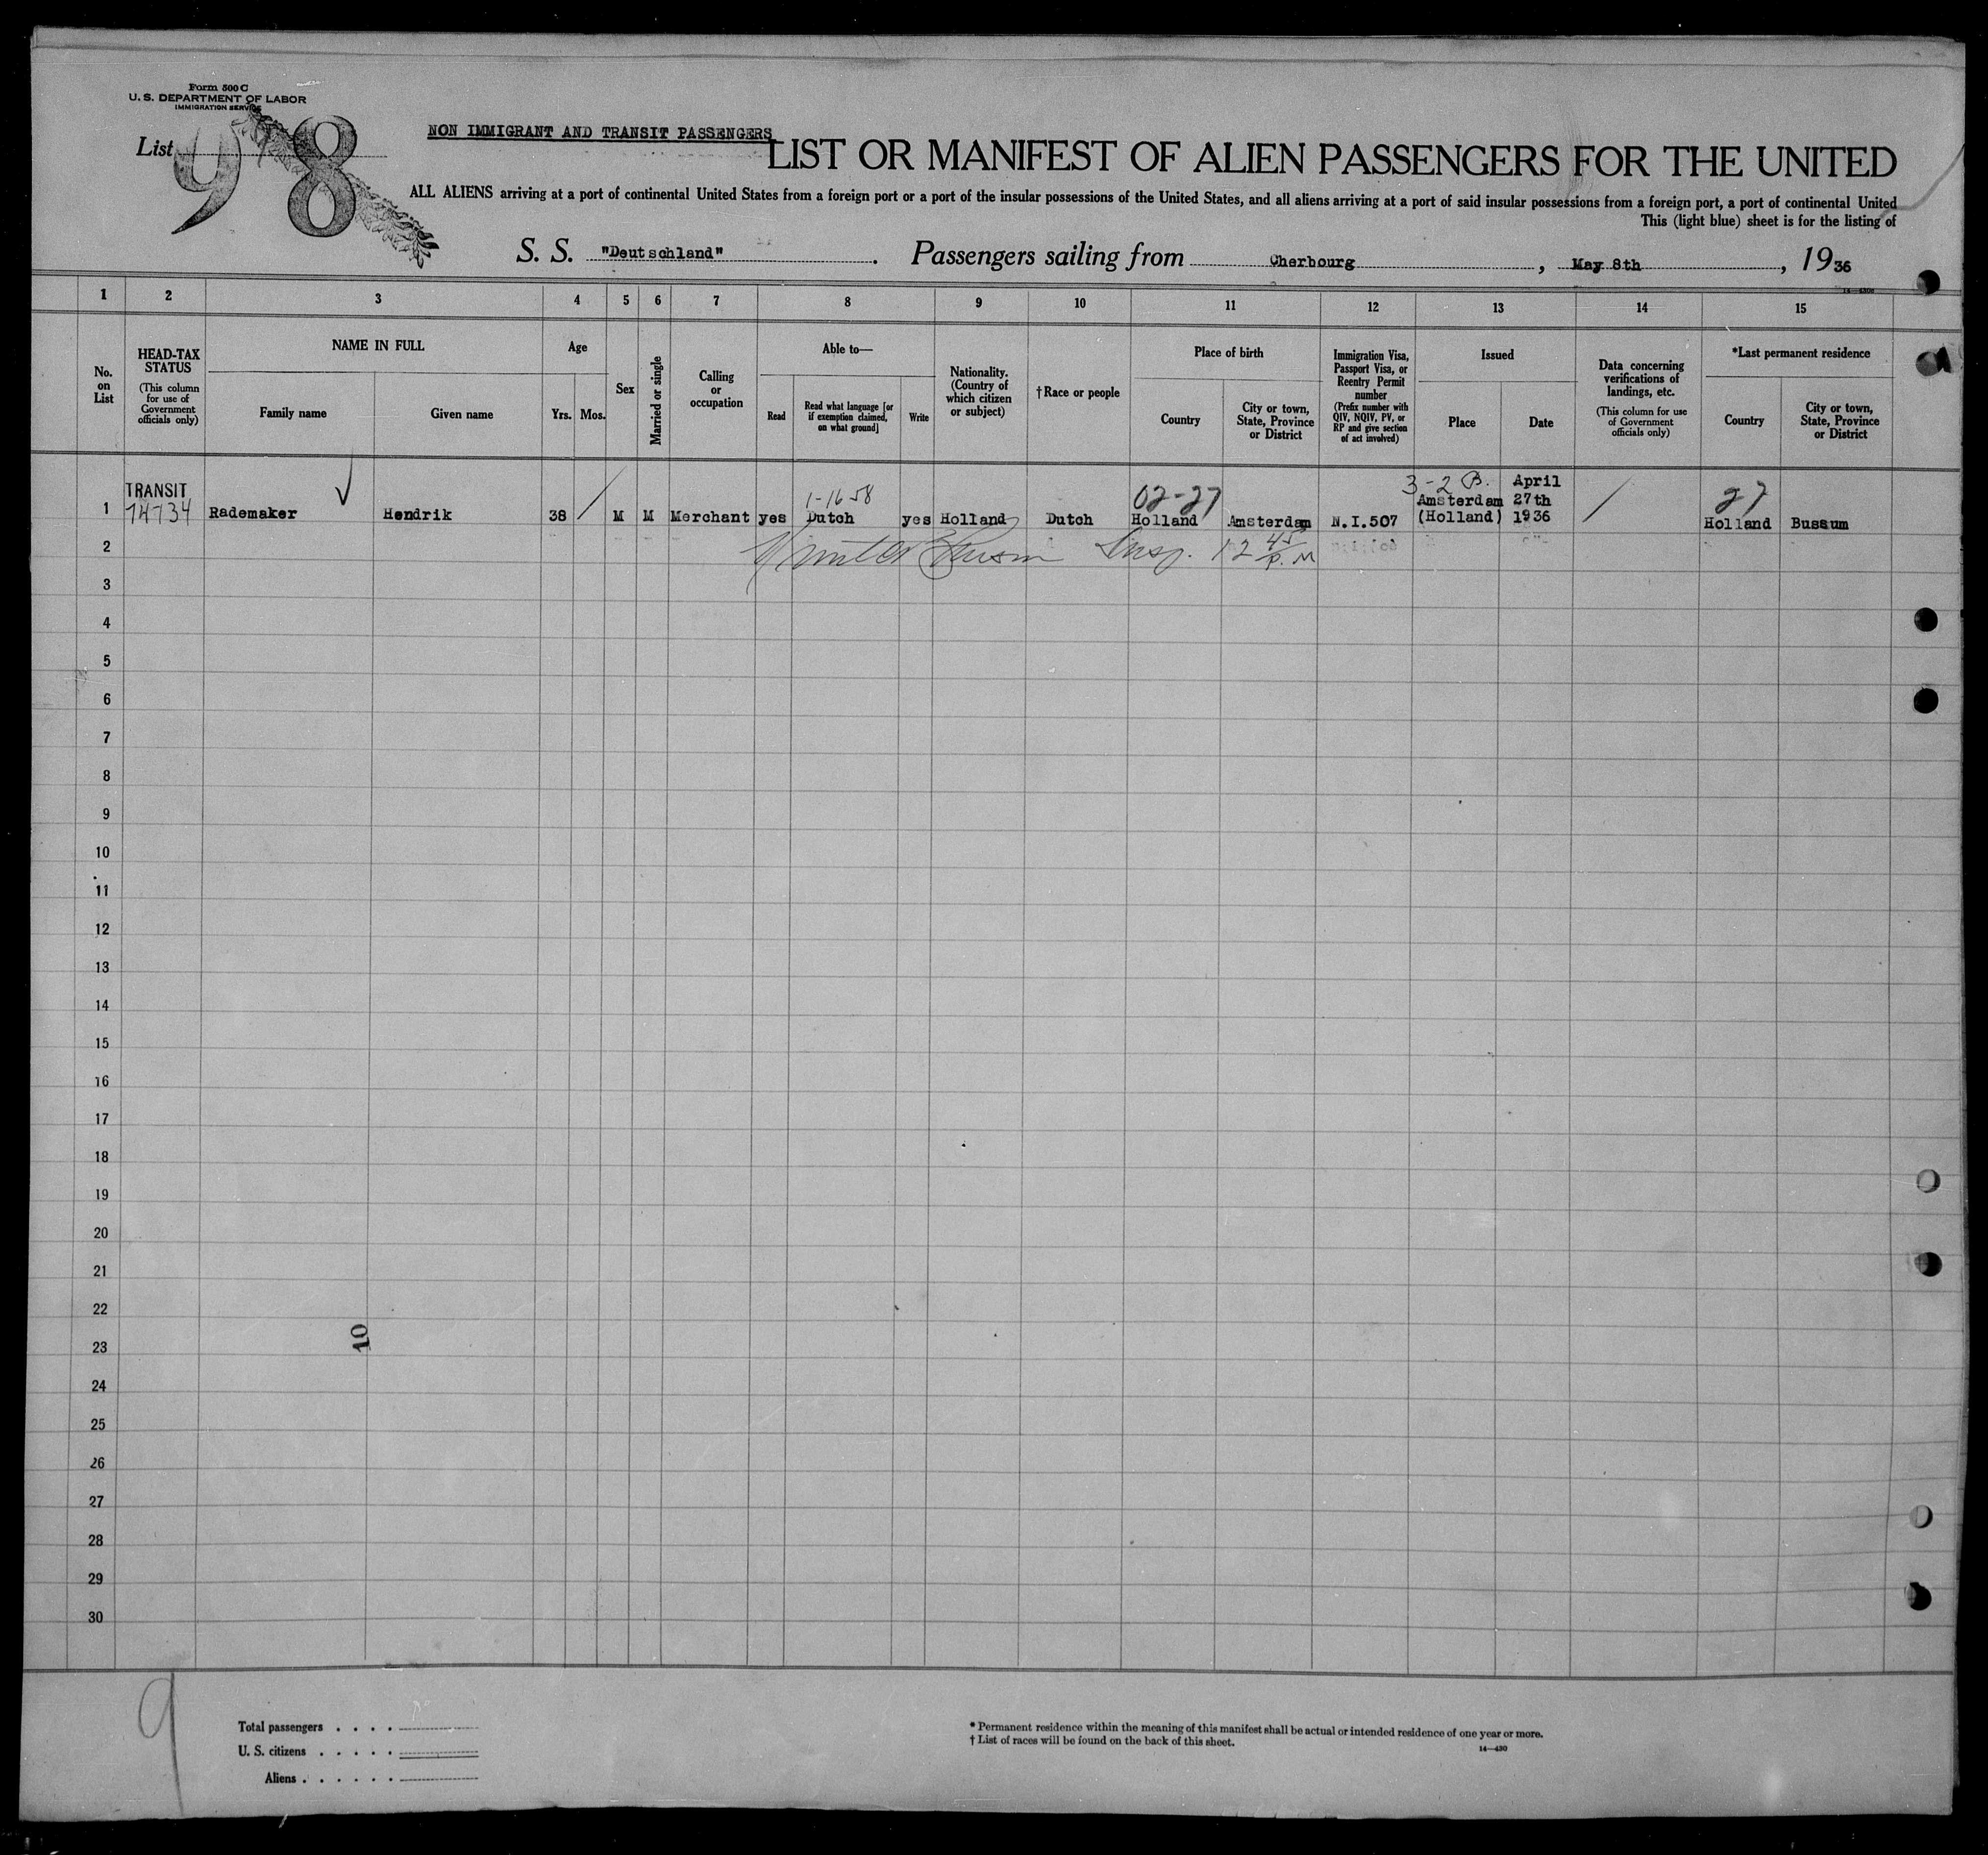 Form 500 C
U. S. DEPARTMENT OF LABOR
IMMIGRATION SERVICE
List 98
NON IMMIGRANT AND TRANSIT PASSENGERS
LIST OR MANIFEST OF ALIEN PASSENGERS FOR THE UNITED
ALL ALIENS arriving at a port of continental United States from a foreign port or a port of the insular possessions of the United States, and all aliens arriving at a port of said insular possessions from a foreign port, a port of continental United
This (light blue) sheet is for the listing of
S. S. "Deutschland". Passengers sailing from Cherbourg, May 8th, 1936
1 2 3 4 5 6 7 8 9 10 11 12 13 14 15
No. on List
HEAD-TAX STATUS
(This column for use of Government officials only)
NAME IN FULL
Family name
Given name
Age
Yrs. Mos.
Sex
Married or single
Calling or occupation
Able to—
Read
Read what language [or if exemption claimed, on what ground]
Write
Nationality. (Country of which citizen or subject)
† Race or people
Place of birth
Country
City or town, State, Province or District
Immigration Visa, Passport Visa, or Reentry Permit number
(Prefix number with QIV, NQIV, PV, or RP and give section of act involved)
Issued
Place
Date
Data concerning verifications of landings, etc.
(This column for use of Government officials only)
*Last permanent residence
Country
City or town, State, Province or District
TRANSIT 1-16 58 02-27 3-2 B. April 27
1 74734 Rademaker Hendrik 38 M M Merchant yes Dutch yes Holland Dutch Holland Amsterdam N.I.507 Amsterdam (Holland) 27th 1936 Holland Bussum
2 Insp. 12 45 P.M
3
4
5
6
7
8
9
10
11
12
13
14
15
16
17
18
19
20
21
22
23
10
24
25
26
27
28
29
30
9
Total passengers . . . .
U. S. citizens . . . . .
Aliens . . . . . .
* Permanent residence within the meaning of this manifest shall be actual or intended residence of one year or more.
† List of races will be found on the back of this sheet.
14—430